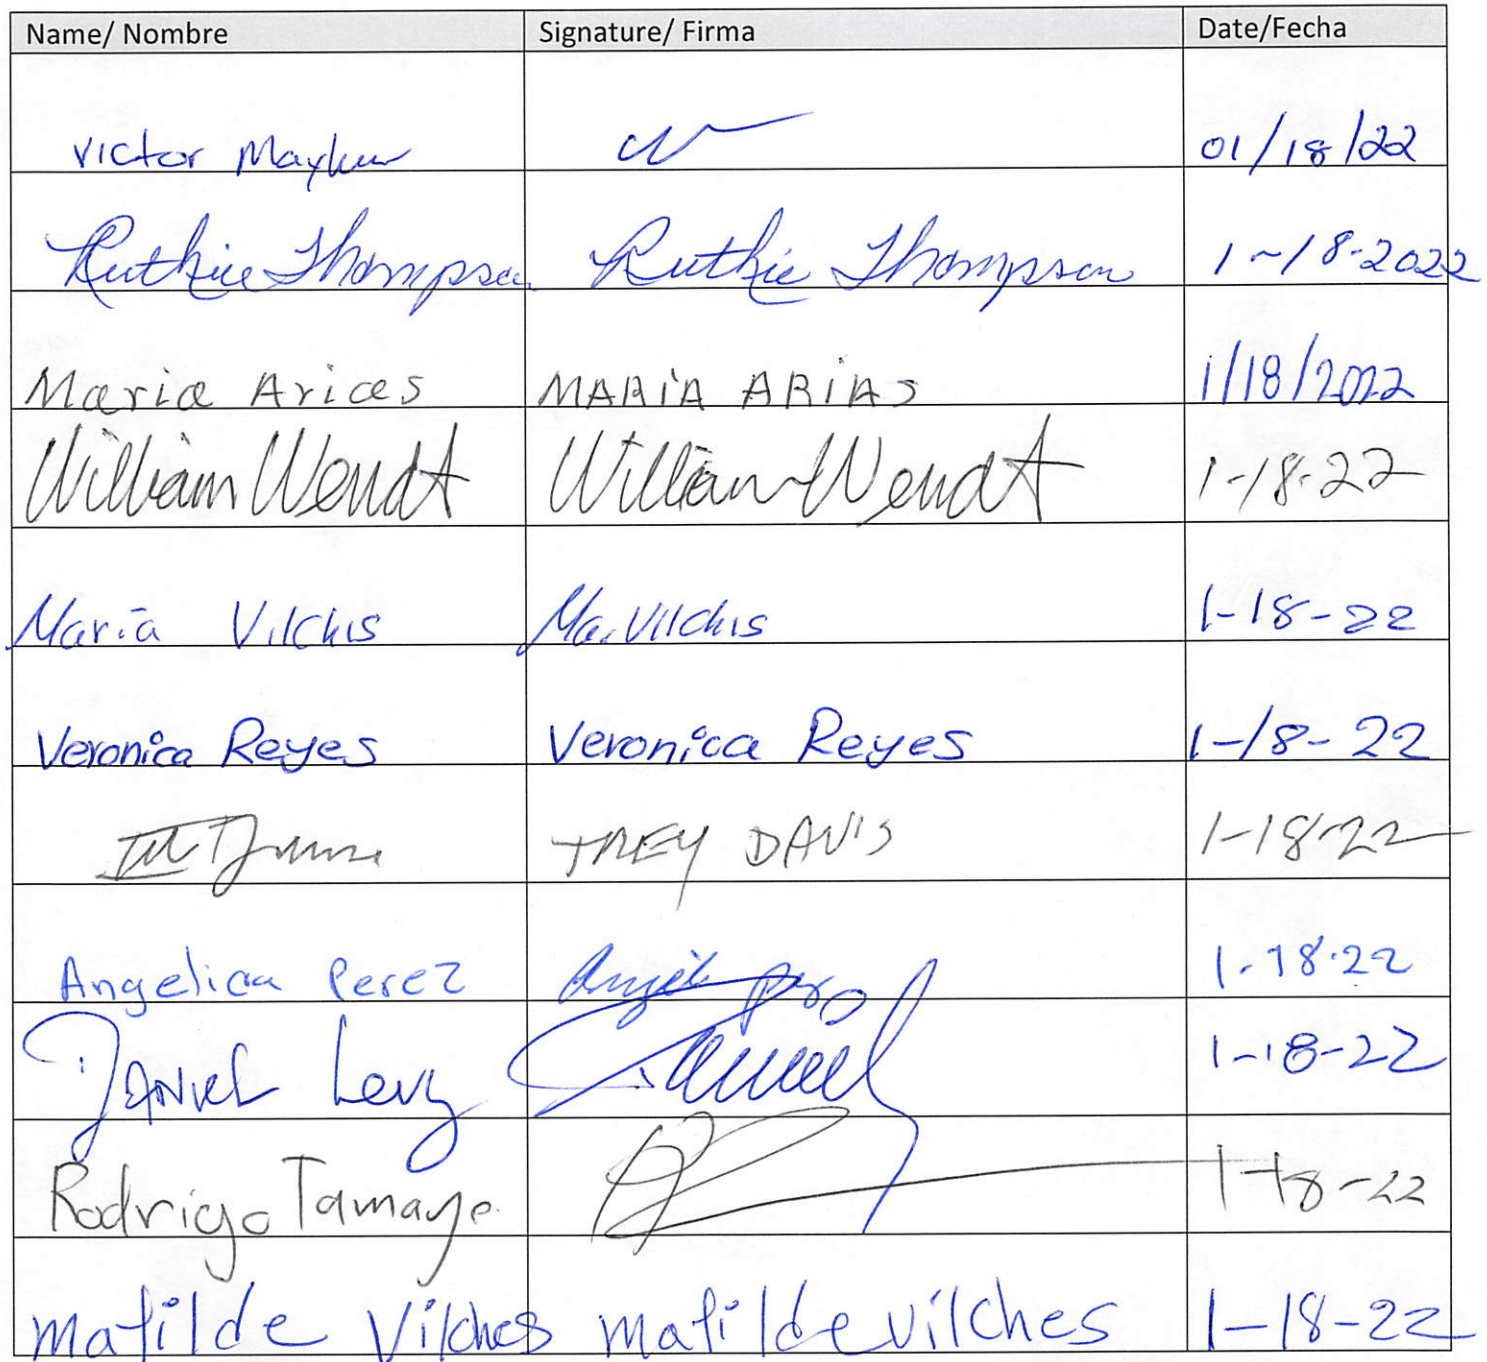 Name/ Nombre Signature/ Firma Date/Fecha
Victor 01/18/22
Ruthie Thompson Ruthie Thompson 1-18-2022
Maria Arias MARIA ARIAS 1/18/2022
William Wendt William Wendt 1-18-22
Maria Vilchis Ma. Vilchis 1-18-22
Veronica Reyes Veronica Reyes 1-18-22
TREY DAVIS 1-18-22
Angelica Perez 1-18-22
DANIEL Levy 1-18-22
Rodrigo Tamayo 1-18-22
Matilde Vilches matilde vilches 1-18-22